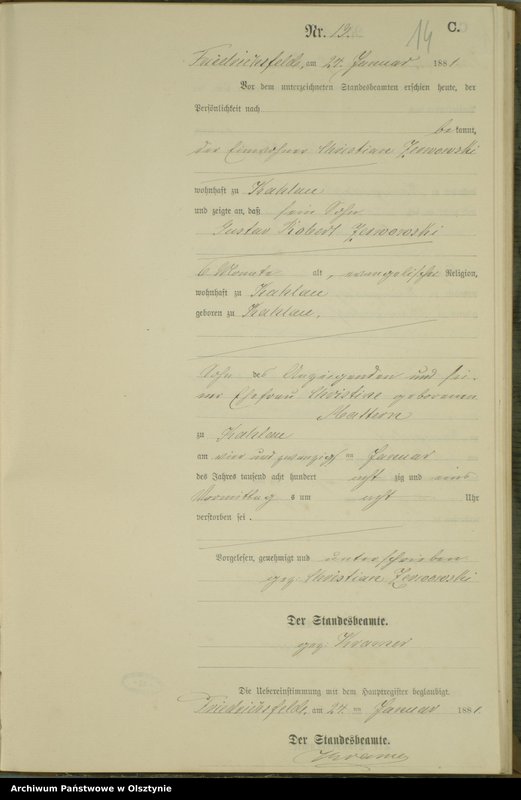 C.
14
Nr. 13.
Friedrichsfelde, am 24. Januar 1881
Vor dem unterzeichneten Standesbeamten erschien heute, der
Persönlichkeit nach
be kannt,
der Einwohner Christian
wohnhaft zu Kahlau
und zeigte an, daß sein Sohn
Gustav Robert
6 Monate alt, evangelische Religion,
wohnhaft zu Kahlau
geboren zu Kahlau,
Sohn des Anzeigenden und sei-
ner Ehefrau Christine geborenen
zu Kahlau
am vier und zwanzigsten Januar
des Jahres tausend acht hundert acht zig und eins
Vormittag s um acht Uhr
verstorben sei.
Vorgelesen, genehmigt und unterschrieben
gez. Christian
Der Standesbeamte.
gez. Kramer
Die Uebereinstimmung mit dem Hauptregister beglaubigt.
Friedrichsfelde, am 24. ten Januar 1881.
Der Standesbeamte.
Kramer
Archiwum Państwowe w Olsztynie